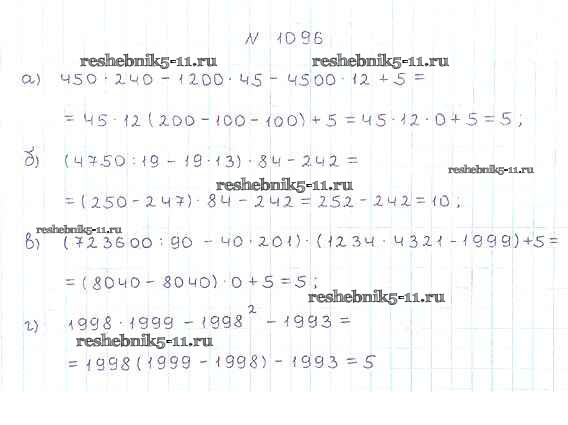 N 1096
reshebnik5-11.ru reshebnik5-11.ru
а) 450 · 240 - 1200 · 45 - 4500 · 12 + 5 =
= 45 · 12 (200 - 100 - 100) + 5 = 45 · 12 · 0 + 5 = 5 ;
б) (4750 : 19 - 19 · 13) · 84 - 242 =
reshebnik5-11.ru
reshebnik5-11.ru
= (250 - 247) · 84 - 242 = 252 - 242 = 10 ;
reshebnik5-11.ru
в) (723600 : 90 - 40 · 201) · (1234 · 4321 - 1999) + 5 =
= (8040 - 8040) · 0 + 5 = 5 ;
reshebnik5-11.ru
г) 1998 · 1999 - 1998² - 1993 =
reshebnik5-11.ru
= 1998 (1999 - 1998) - 1993 = 5